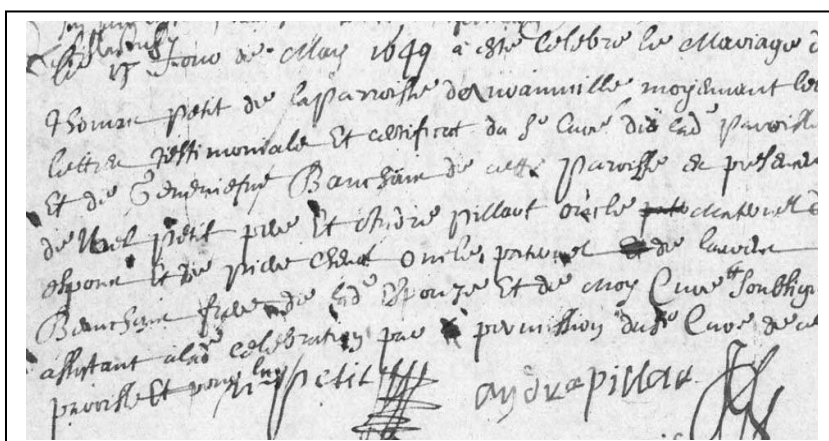 Le 17 Jour de May 1649 a esté Celebré le Mariage d
Thomas petit de la Parroisse de moyennant les
lettres testimoniale Et certificat du Sr Curé de lad Paroisse
Et de Geneviefve Banchain de cette Paroisse en presence
de Noel petit pere Et Andre pillaut oncle maternel
espoux Et de cheut oncle paternel de
Banchain frere de lad Epouze Et de Moy Curé Soubsigne
assistant a lad celebration par permission du Sr Curé de
paroisse Et pour luy
N petit andre pillau